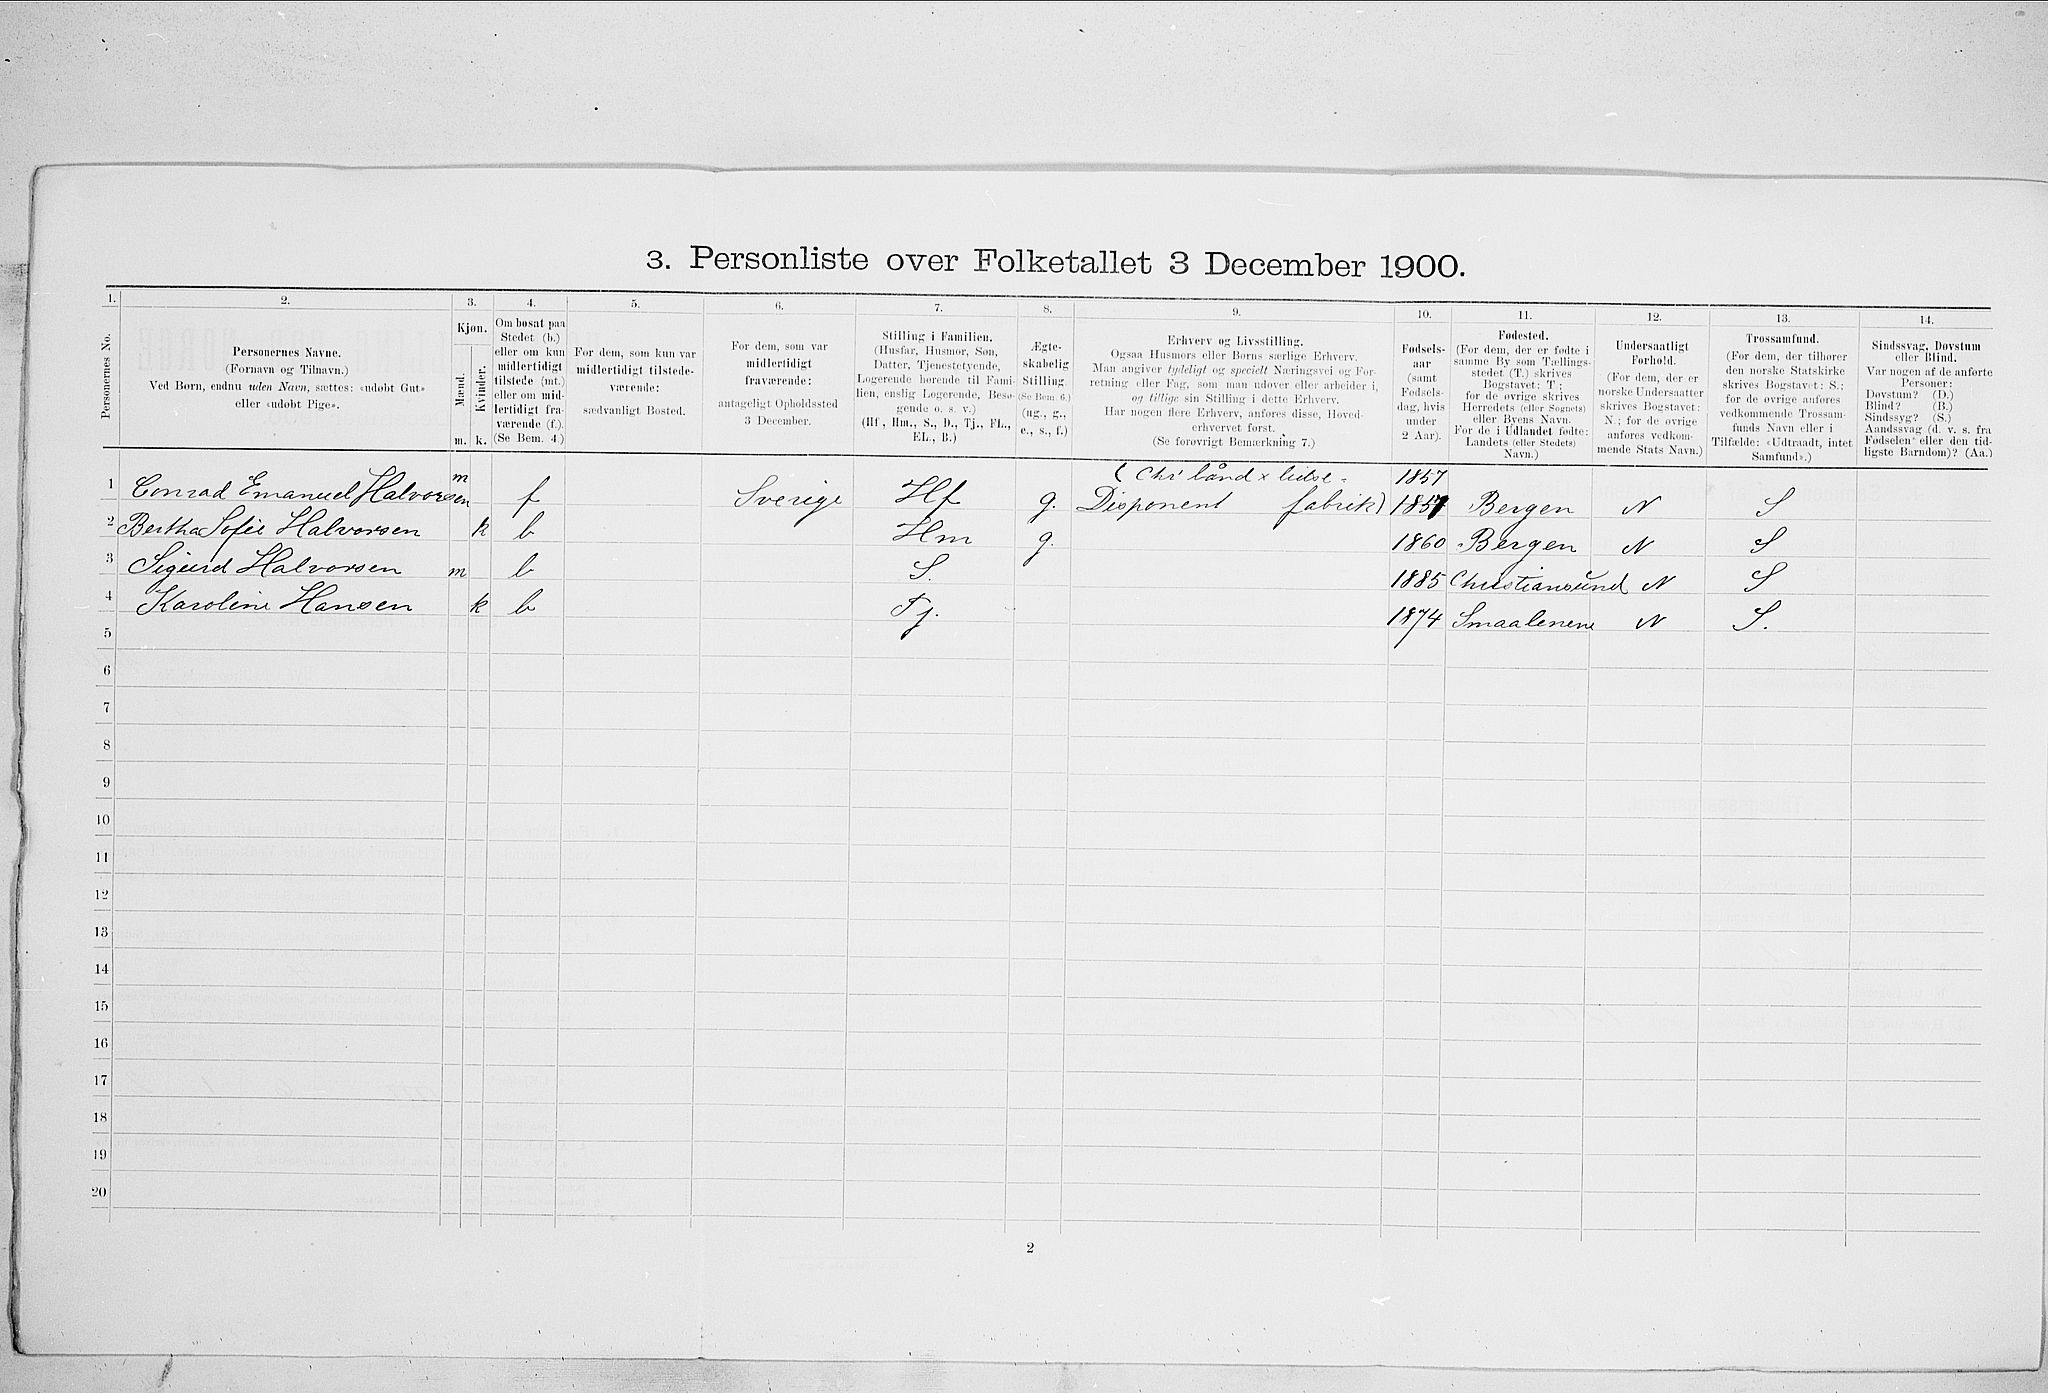 3. Personliste over Folketallet 3 December 1900.
1. 2. 3. 4. 5. 6. 7. 8. 9. 10. 11. 12. 13. 14.
Personernes No.
Personernes Navne.
(Fornavn og Tilnavn.)
Ved Børn, endnu uden Navn, sættes: «udøbt Gut»
eller «udøbt Pige».
Kjøn.
Mænd.
Kvinder.
m. k.
Om bosat paa
Stedet (b.)
eller om kun
midlertidigt
tilstede (mt.)
eller om mid-
lertidigt fra-
værende (f.).
(Se Bem. 4.)
For dem, som kun var
midlertidigt tilstede-
værende:
sædvanligt Bosted.
For dem, som var
midlertidigt
fraværende:
antageligt Opholdssted
3 December.
Stilling i Familien.
(Husfar, Husmor, Søn,
Datter, Tjenestetyende,
Logerende hørende til Fami-
lien, enslig Logerende, Besø-
gende o. s. v.)
(Hf., Hm., S., D., Tj., FL.,
EL., B.)
Ægte-
skabelig
Stilling.
(Se Bem. 6.)
(ug., g.,
e., s., f.)
Erhverv og Livsstilling.
Ogsaa Husmors eller Børns særlige Erhverv.
Man angiver tydeligt og specielt Næringsvei og For-
retning eller Fag, som man udøver eller arbeider i,
og tillige sin Stilling i dette Erhverv.
Har nogen flere Erhverv, anføres disse, Hoved-
erhvervet først.
(Se forøvrigt Bemærkning 7.)
Fødsels-
aar
(samt
Fødsels-
dag, hvis
under
2 Aar).
Fødested.
(For dem, der er fødte i
samme By som Tællings-
stedet (T.) skrives
Bogstavet: T;
for de øvrige skrives
Herredets (eller Sognets)
eller Byens Navn.
For de i Udlandet fødte:
Landets (eller Stedets)
Navn.)
Undersaatligt
Forhold.
(For dem, der er
norske Undersaatter
skrives Bogstavet:
N.; for de øvrige
anføres vedkom-
mende Stats Navn.)
Trossamfund.
(For dem, der tilhører
den norske Statskirke
skrives Bogstavet: S.;
for de øvrige anføres
vedkommende Trossam-
funds Navn eller i
Tilfælde: «Udtraadt, intet
Samfund».)
Sindssvag, Døvstum
eller Blind.
Var nogen af de anførte
Personer:
Døvstum? (D.)
Blind? (B.)
Sindssyg? (S.)
Aandssvag (d. v. s. fra
Fødselen eller den tid-
ligste Barndom)? (Aa.)
1 Conrad Emanuel Halvorsen m f Sverige Hf g. Disponent fabrik) 1857 1857 Bergen N S
2 Bertha Sofie Halvorsen k b Hm g. 1860 Bergen N S
3 Sigurd Halvorsen m b S. 1885 Christiansund N S
4 Karoline Hansen k b Tj. 1874 Smaalenene N S.
5
6
7
8
9
10
11
12
13
14
15
16
17
18
19
20
2